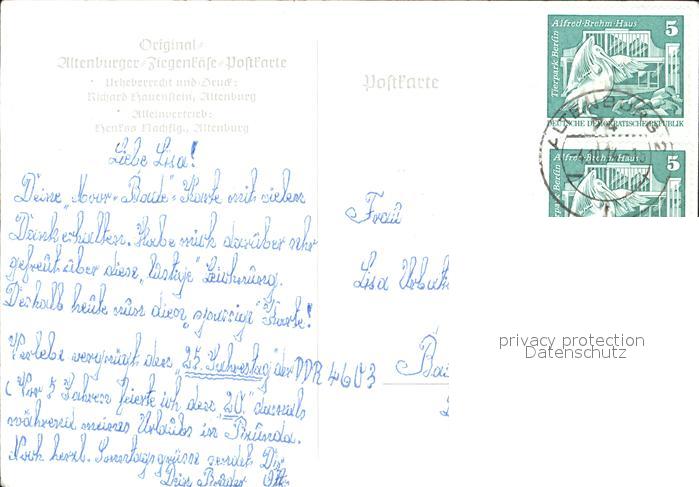 Original-
Altenburger-Ziegenkäse-Postkarte
Urheberrecht und Druck:
Richard Hauenstein, Altenburg
Alleinvertrieb:
Henkos Nachflg., Altenburg
Liebe Lisa!
Deine "Moor-Baude"-Karte mit vielen
Dank erhalten. Habe mich darüber sehr
gefreut über diese "lustige" Zeichnung.
Deshalb heute nun diese Karte!
Verlebe vergnügt den "25. Jahrestag" der DDR
(Vor 5 Jahren feierte ich den "20." damals
während meines Urlaubs in
Noch herzl. Sonntagsgrüsse sendet Dir
Dein Bruder
Postkarte
Frau
Lisa
4603
Alfred-Brehm-Haus 5
Tierpark Berlin
DEUTSCHE DEMOKRATISCHE REPUBLIK
ALTENBURG 2
Alfred-Brehm-Haus 5
park Berlin
privacy protection
Datenschutz